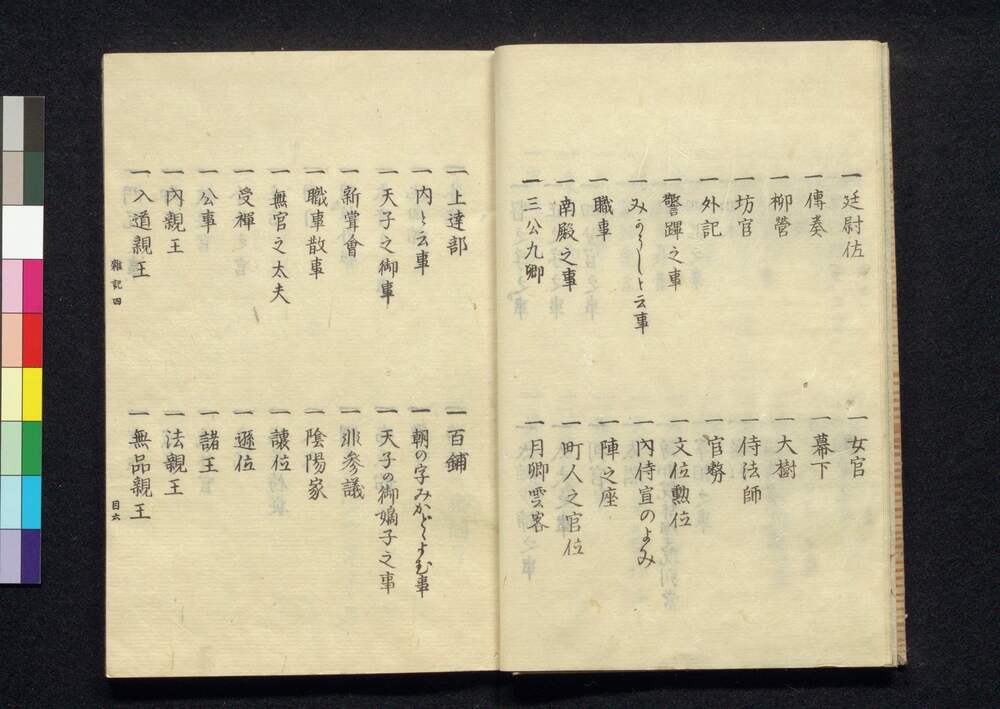 一 廷尉佐　一 女官
一 傳奏　一 幕下
一 柳營　一 大樹
一 坊官　一 侍法師
一 外記　一 官務
一 警蹕之事　一 文位勲位
一 みかうしト云事　一 内侍宣のよみ
一 職事　一 陣之座
一 南殿之事　一 町人之官位
一 三公九卿　一 月卿雲客
一 上達部　一 百鋪
一 内〻云事　一 朝の字みかどとよむ事
一 天子之御事　一 天子の御嫡子之事
一 新嘗會　一 非參議
一 職事散事　一 陰陽家
一 無官之太夫　一 讓位
一 受禪　一 遜位
一 公事　一 諸王
一 内親王　一 法親王
一 入道親王　一 無品親王
雜記四　目六